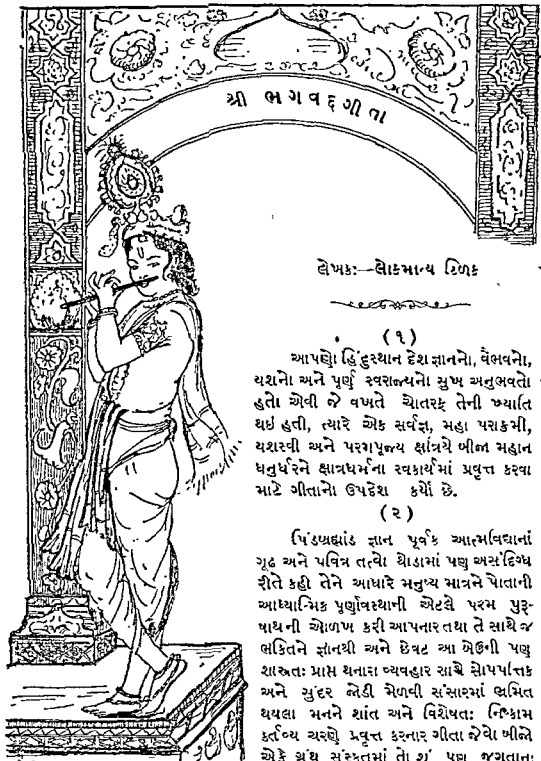 શ્રી ભગવદ્ગીતા
લેખકઃ—લોકમાન્ય ટિળક
(૧)
આપણો હિંદુસ્થાન દેશ જ્ઞાનનો, વૈભવનો,
યશનો અને પૂર્ણ સ્વરાજ્યનો સુખ અનુભવતો
હતો એવી જે વખતે ચોતરફ તેની ખ્યાતિ
થઇ હતી, ત્યારે એક સર્વજ્ઞ, મહા પરાક્રમી,
યશસ્વી અને પરમપૂજ્ય ક્ષત્રિયે બીજા મહાન
ધનુર્ધરને ક્ષાત્રધર્મના સ્વકાર્યમાં પ્રવૃત્ત કરવા
માટે ગીતાનો ઉપદેશ કર્યો છે.
(૨)
પિંડબ્રહ્માંડ જ્ઞાન પૂર્વક આત્મવિદ્યાનાં
ગૂઢ અને પવિત્ર તત્વો થોડામાં પણ અસંદિગ્ધ
રીતે કહી તેને આધારે મનુષ્ય માત્રને પોતાની
આધ્યાત્મિક પૂર્ણાવસ્થાની એટલે પરમ પુરૂ-
ષાથની ઓળખ કરી આપનાર તથા તે સાથે જ
ભક્તિને જ્ઞાનથી અને છેવટ આ બેઉની પણ
શાસ્ત્રતઃ પ્રાપ્ત થનારા વ્યવહાર સાથે સોપપત્તિક
અને સુંદર જોડી મેળવી સંસારમાં ભ્રમિત
થયલા મનને શાંત અને વિશેષતઃ નિષ્કામ
કર્તવ્ય ચરણે પ્રવૃત્ત કરનાર ગીતા જેવો બીજો
એકે ગ્રંથ સંસ્કૃતમાં તો શું પણ જગતના